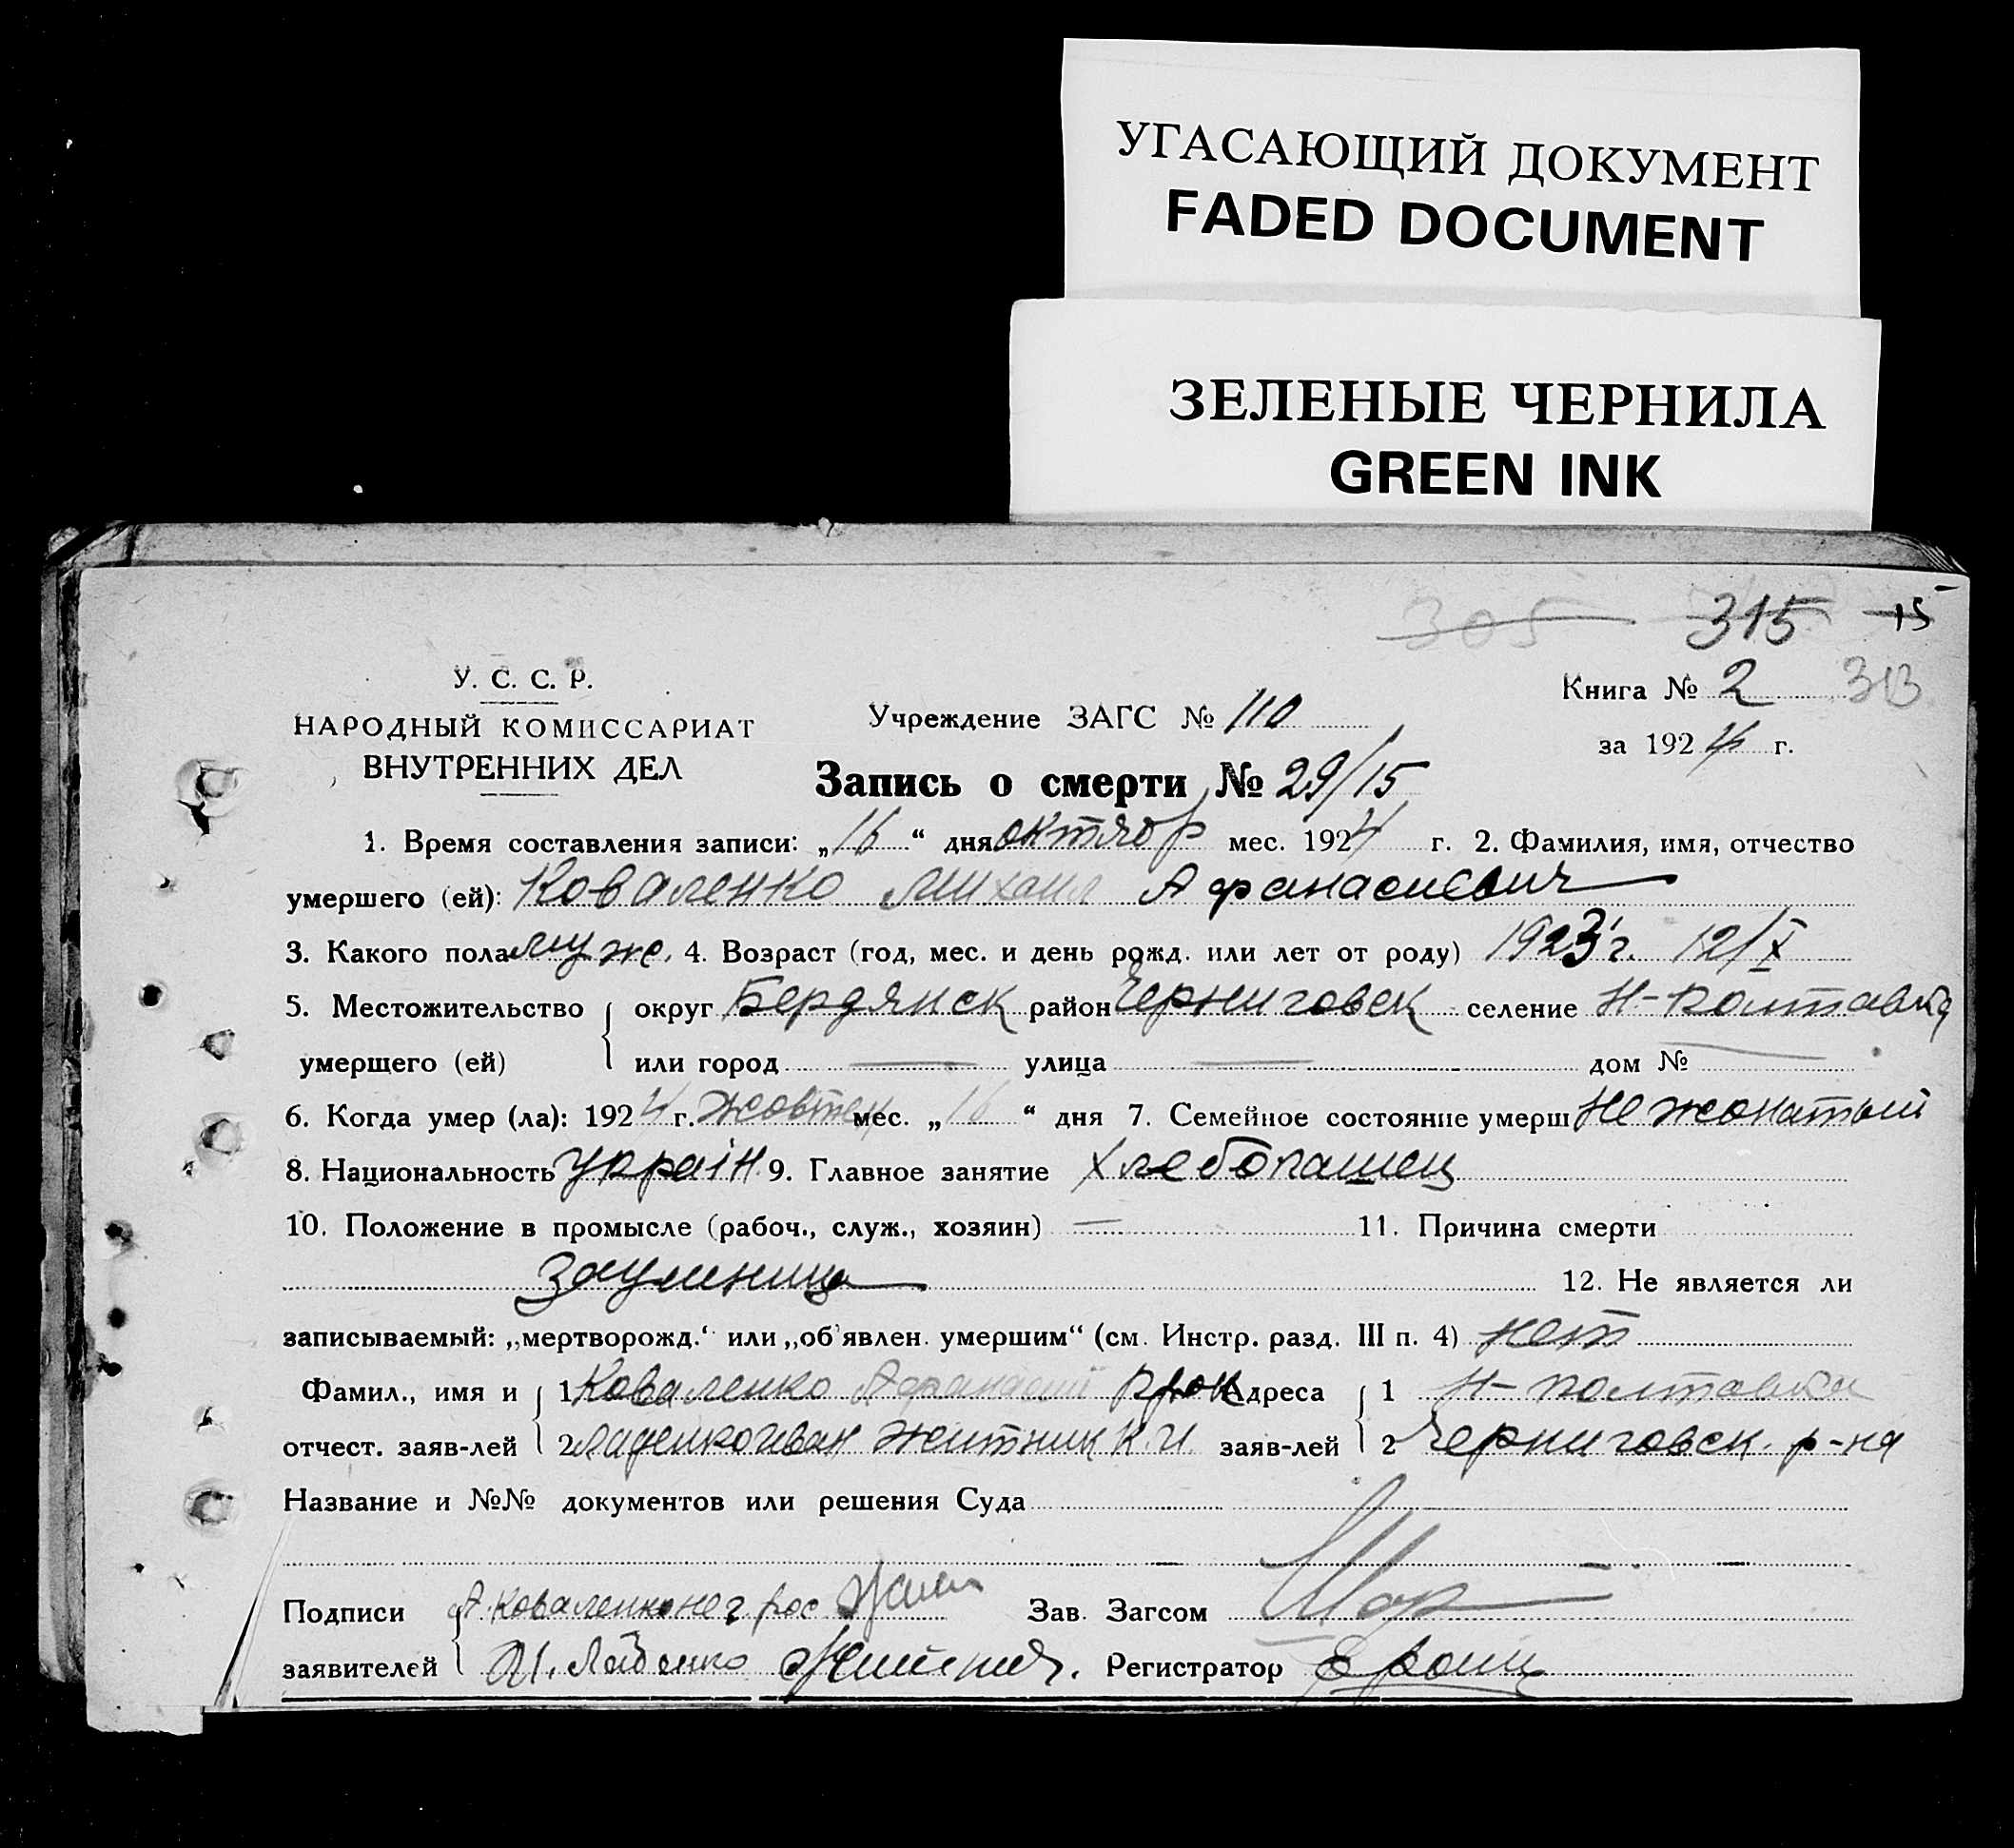 УГАСАЮЩИЙ ДОКУМЕНТ
FADED DOCUMENT
ЗЕЛЕНЫЕ ЧЕРНИЛА
GREEN INK
305 315 15
У. С. С. Р.
НАРОДНЫЙ КОМИССАРИАТ
ВНУТРЕННИХ ДЕЛ
Учреждение ЗАГС № 110
Книга № 2 313
за 1924 г.
Запись о смерти № 29/15
1. Время составления записи: „16“ дня октябр мес. 1924 г. 2. Фамилия, имя, отчество
умершего (ей): Коваленко Михаил Афанасиевич
3. Какого пола муже. 4. Возраст (год, мес. и день рожд. или лет от роду) 1923 г. 12/X
5. Местожительство округ Бердянск район Черниговск селение Н-Полтавка
умерщего (ей) или город — улица — дом № —
6. Когда умер (ла): 1924 г. жовтен мес. „16“ дня 7. Семейное состояние умерш Не жонатый
8. Национальность украін. 9. Главное занятие Хлебопашец
10. Положение в промысле (рабоч., служ., хозяин) — 11. Причина смерти
12. Не является ли
записываемый: „мертворожд.‘ или „об'явлен. умершим“ (см. Инстр. разд. III п. 4) нет
Фамил., имя и 1 Коваленко Афанасий Адреса 1 Н-Полтавка
отчест. заяв-лей 2 Иван Житник К. И. заяв-лей 2 Черниговск. р-на
Название и №№ документов или решения Суда
Подписи А. Коваленко Зав. Загсом
заявителей И. Регистратор